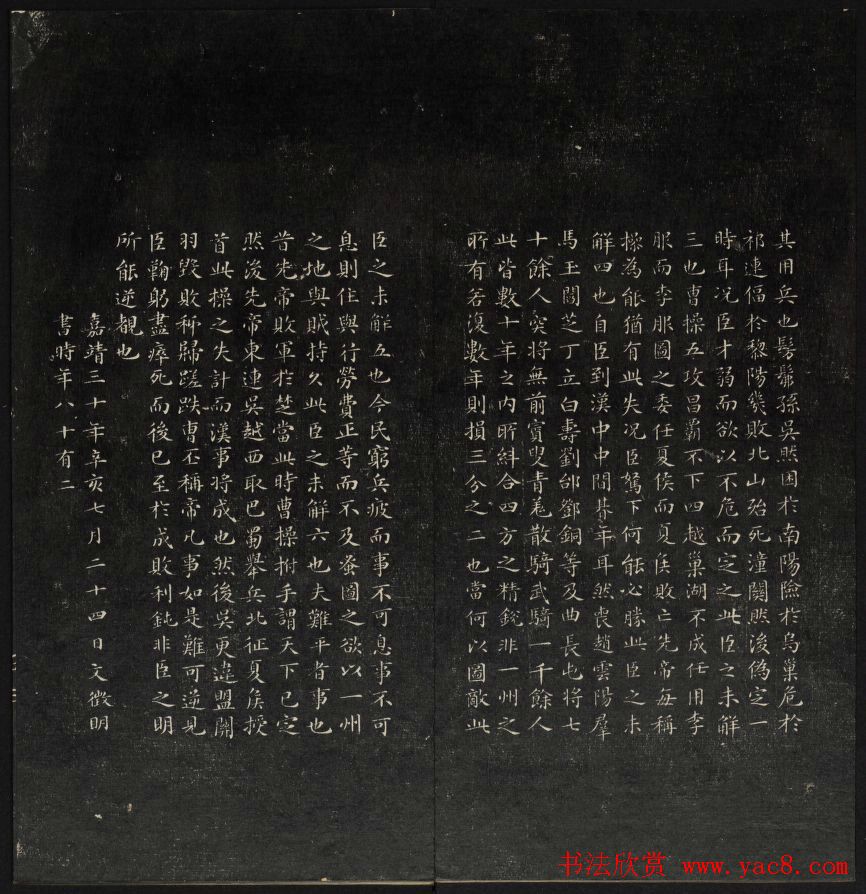 其用兵也髣髴孫吳然困於南陽險於烏巢危於
祁連偪於黎陽幾敗北山殆死潼關然後偽定一
時耳况臣才弱而欲以不危而定之此臣之未解
三也曹操五攻昌霸不下四越巢湖不成任用李
服而李服圖之委任夏侯而夏侯敗亡先帝每稱
操為能猶有此失况臣駑下何能必勝此臣之未
解四也自臣到漢中中間朞年耳然喪趙雲陽羣
馬玉閻芝丁立白壽劉郃鄧銅等及曲長屯將七
十餘人突將無前賨叟青羌散騎武騎一千餘人
此皆數十年之內所糾合四方之精銳非一州之
所有若復數年則損三分之二也當何以圖敵此
臣之未解五也今民窮兵疲而事不可息事不可
息則住與行勞費正等而不及蚤圖之欲以一州
之地與賊持久此臣之未解六也夫難平者事也
昔先帝敗軍於楚當此時曹操拊手謂天下已定
然後先帝東連吳越西取巴蜀舉兵北征夏侯授
首此操之失計而漢事將成也然後吳更違盟關
羽毀敗秭歸蹉跌曹丕稱帝凡事如是難可逆見
臣鞠躬盡瘁死而後已至於成敗利鈍非臣之明
所能逆覩也
嘉靖三十年辛亥七月二十四日文徵明
書時年八十有二
书法欣赏 www.yac8.com